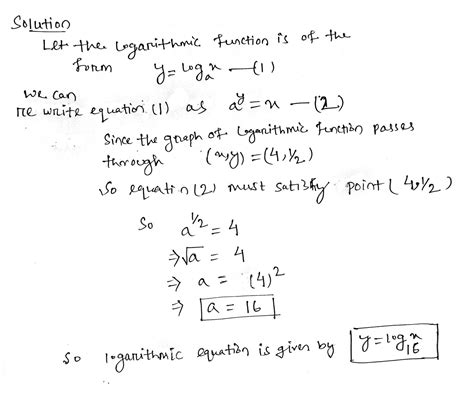 Solution
Let the Logarithmic function is of the
form y = logₐx —(1)
we can
re write equation (1) as a^y = x —(2)
Since the graph of Logarithmic function passes
through (x,y) = (4,1/2)
So equation (2) must satisfy point (4,1/2)
So a^1/2 = 4
⇒ √a = 4
⇒ a = (4)²
⇒ a = 16
So logarithmic equation is given by y = log₁₆x